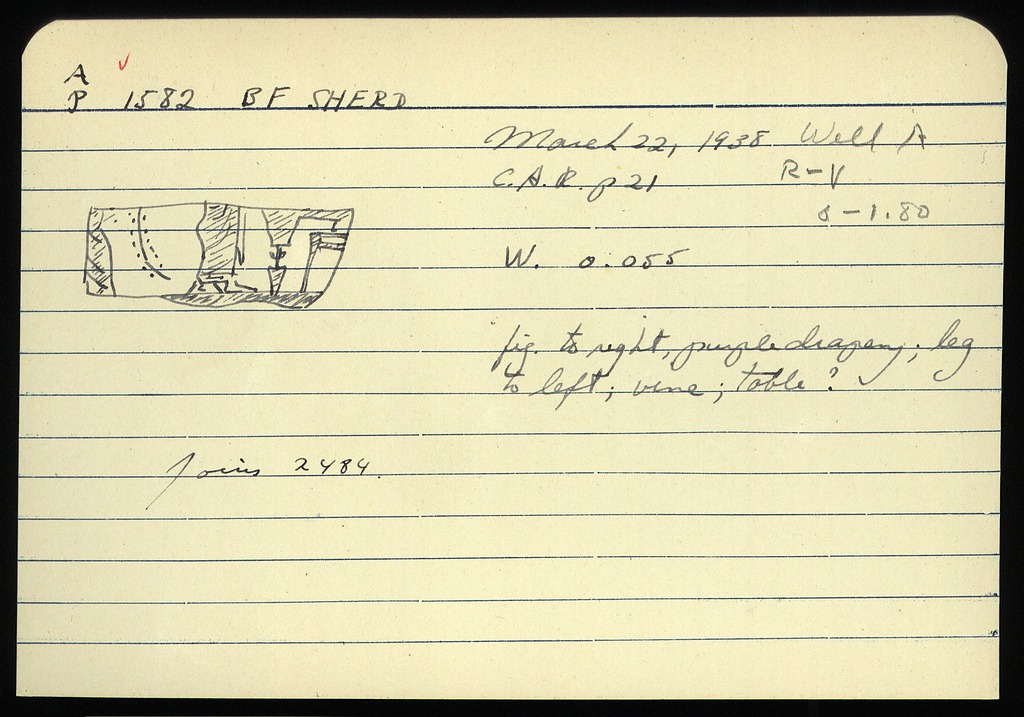 A
P 1582 BF SHERD
March 22, 1938 Well A
C.A.R. p 21 R-V
8-1.80
W. 0.055
fig. to right, purple drapery; leg
to left; vine; table?
Joins 2484.